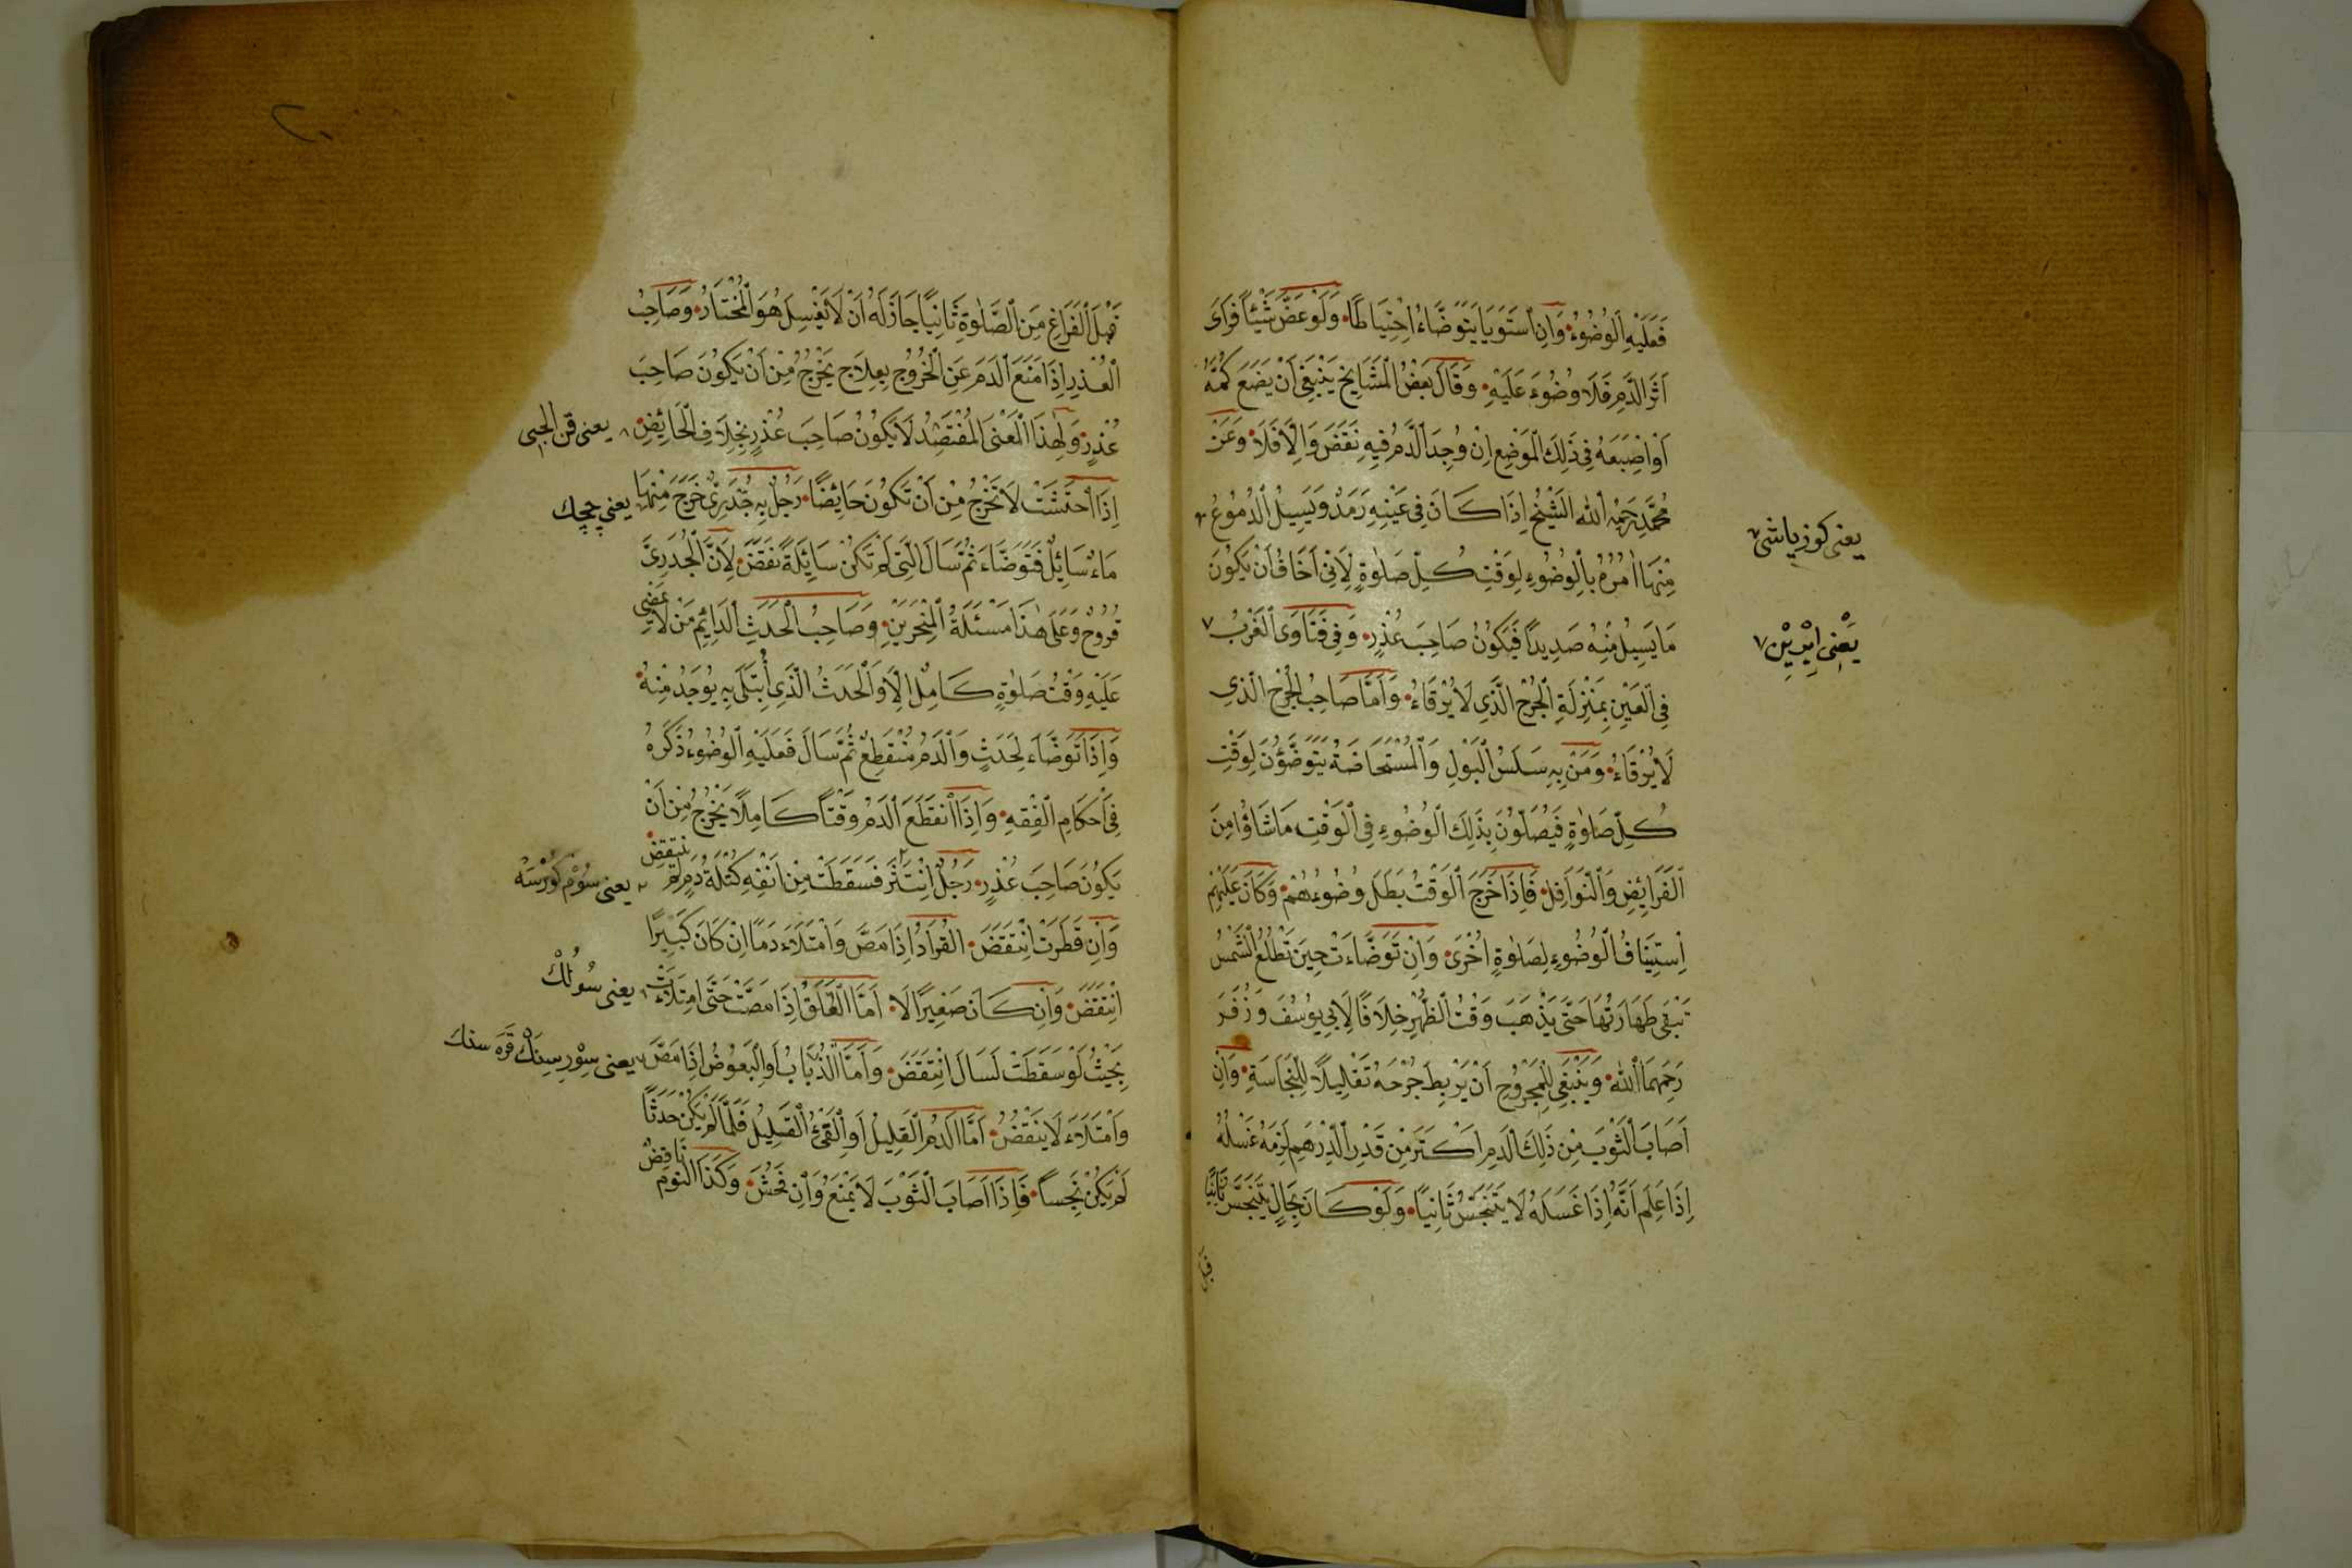 فَعَلَيْهِ الْوُضُوءُ وَاِنِ اسْتَوَيَا يَتَوَضَّاءُ اِحْتِيَاطًا وَلَوْ عَضَّ شَيْئًا فَرَاَى
اَثَرَ الدَّمِ فَلَا وُضُوءَ عَلَيْهِ وَقَالَ بَعْضُ الْمَشَايِخِ يَنْبَغِى اَنْ يَضَعَ كُمَّهُ
اَوْ اِصْبَعَهُ فِى ذَلِكَ الْمَوْضِعِ اِنْ وُجِدَ الدَّمُ فِيهِ نَقَضَ وَاِلَّا فَلَا وَعَنْ
مُحَمَّدٍ رَحِمَهُ اللّٰه الشَّيْخُ اِذَا كَانَ فِى عَيْنِهِ رَمَدٌ وَيَسِيلُ الدُّمُوعُ
يعنى كوز ياشى
مِنْهَا اٰمُرُهُ بِالْوُضُوءِ لِوَقْتِ كُلِّ صَلٰوةٍ لِاَنِّى اَخَافُ اَنْ يَكُونَ
مَا يَسِيلُ مِنْهُ صَدِيدًا فَيَكُونُ صَاحِبَ عُذْرٍ وَفِى فَتَاوَى الْغَرْبُ ٧
يَعْنِى اِيْرِيْنْ ٧
فِى الْعَيْنِ بِمَنْزِلَةِ الْجُرْحِ الَّذِى لَا يُرْقَاءُ وَاَمَّا صَاحِبُ الْجُرْحِ الَّذِى
لَا يُرْقَاءُ وَمَنْ بِهِ سَلَسُ الْبَوْلِ وَالْمُسْتَحَاضَةُ يَتَوَضَّؤُنَ لِوَقْتِ
كُلِّ صَلٰوةٍ فَيُصَلُّونَ بِذَلِكَ الْوُضُوءِ فِى الْوَقْتِ مَا شَاؤُا مِنَ
الْفَرَائِضِ وَالنَّوَافِلِ فَاِذَا خَرَجَ الْوَقْتُ بَطَلَ وُضُوءُهُمْ وَكَانَ عَلَيْهِمْ
اِسْتِينَافُ الْوُضُوءِ لِصَلٰوةٍ اُخْرَى وَاِنْ تَوَضَّاءَتْ حِينَ تَطْلُعُ الشَّمْسُ
تَبْقَى طَهَارَتُهَا حَتَّى يَذْهَبَ وَقْتُ الظُّهْرِ خِلَافًا لِاَبِى يُوسُفَ وَزُفَرَ
رَحِمَهُمَا اللّٰه وَيَنْبَغِى لِلْمَجْرُوحِ اَنْ يَرْبِطَ جُرْحَهُ تَقْلِيلًا لِلنَّجَاسَةِ وَاِنْ
اَصَابَ الثَّوْبَ مِنْ ذَلِكَ الدَّمِ اَكْثَرَ مِنْ قَدْرِ الدِّرْهَمِ لَزِمَهُ غَسْلُهُ
اِذَا عَلِمَ اَنَّهُ اِذَا غَسَلَهُ لَا يَتَنَجَّسُ ثَانِيًا وَلَوْ كَانَ بِحَالٍ يَتَنَجَّسُ ثَانِيًا
قبل
قَبْلَ الْفَرَاغِ مِنَ الصَّلٰوةِ ثَانِيًا جَازَ لَهُ اَنْ لَا يَغْسِلَ هُوَ الْمُخْتَارُ وَصَاحِبُ
الْعُذْرِ اِذَا مَنَعَ الدَّمَ عَنِ الْخُرُوجِ بِعِلَاجٍ يَخْرُجُ مِنْ اَنْ يَكُونَ صَاحِبَ
عُذْرٍ وَلِهٰذَا الْمَعْنَى الْمُفْتَصِدُ لَا يَكُونُ صَاحِبَ عُذْرٍ بِخِلَافِ الْحَائِضِ
اِذَا احْتَشَتْ لَا تَخْرُجُ مِنْ اَنْ تَكُونَ حَائِضًا رَجُلٌ بِهِ جُدَرِىٌّ خَرَجَ مِنْهَا
يعنى چچك
مَاءٌ سَائِلٌ فَتَوَضَّاءَ ثُمَّ سَالَ الَّتِى لَمْ تَكُنْ سَائِلَةً نَقَضَ لِاَنَّ الْجُدَرِىَّ
قُرُوحٌ وَعَلَى هٰذَا مَسْئَلَةُ الْمِنْخَرَيْنِ وَصَاحِبُ الْحَدَثِ الدَّائِمِ مَنْ لَا يَمْضِى
عَلَيْهِ وَقْتُ صَلٰوةٍ كَامِلٌ اِلَّا وَالْحَدَثُ الَّذِى اُبْتُلَى بِهِ يُوجَدُ مِنْهُ
وَاِذَا تَوَضَّاءَ لِحَدَثٍ وَالدَّمُ مُنْقَطِعٌ ثُمَّ سَالَ فَعَلَيْهِ الْوُضُوءُ ذَكَرَهُ
فِى اَحْكَامِ الْفِقْهِ وَاِذَا انْقَطَعَ الدَّمُ وَقْتًا كَامِلًا يَخْرُجُ مِنْ اَنْ
يَكُونَ صَاحِبَ عُذْرٍ رَجُلٌ اِنْتَثَرَ فَسَقَطَتْ مِنْ اَنْفِهِ كُتْلَةُ دَمٍ لَمْ يَنْتَقِضْ
يعنى سُومْكُورْسَه
وَاِنْ قَطَرَتْ اِنْتَقَضَ الْقُرَادُ اِذَا مَصَّ وَامْتَلَاءَ دَمًا اِنْ كَانَ كَبِيرًا
انْتَقَضَ وَاِنْ كَانَ صَغِيرًا لَا اَمَّا الْعَلَقُ اِذَا مَصَّتْ حَتَّى امْتَلَاءَتْ
يعنى سُولُكْ
بِحَيْثُ لَوْ سَقَطَتْ لَسَالَ انْتَقَضَ وَاَمَّا الذُّبَابُ اَوِ الْبَعُوضُ اِذَا مَصَّ
يعنى سِوْرِسِنَكْ قَرَه سنك
وَامْتَلَاءَ لَا يَنْقُضُ اَمَّا الدَّمُ الْقَلِيلُ اَوِ الْقَىْءُ الْقَلِيلُ فَلَمَّا لَمْ يَكُنْ حَدَثًا
لَمْ يَكُنْ نَجِسًا فَاِذَا اَصَابَ الثَّوْبَ لَا يَمْنَعُ وَاِنْ فَحُشَ وَكَذَا النَّوْمُ نَاقِضٌ